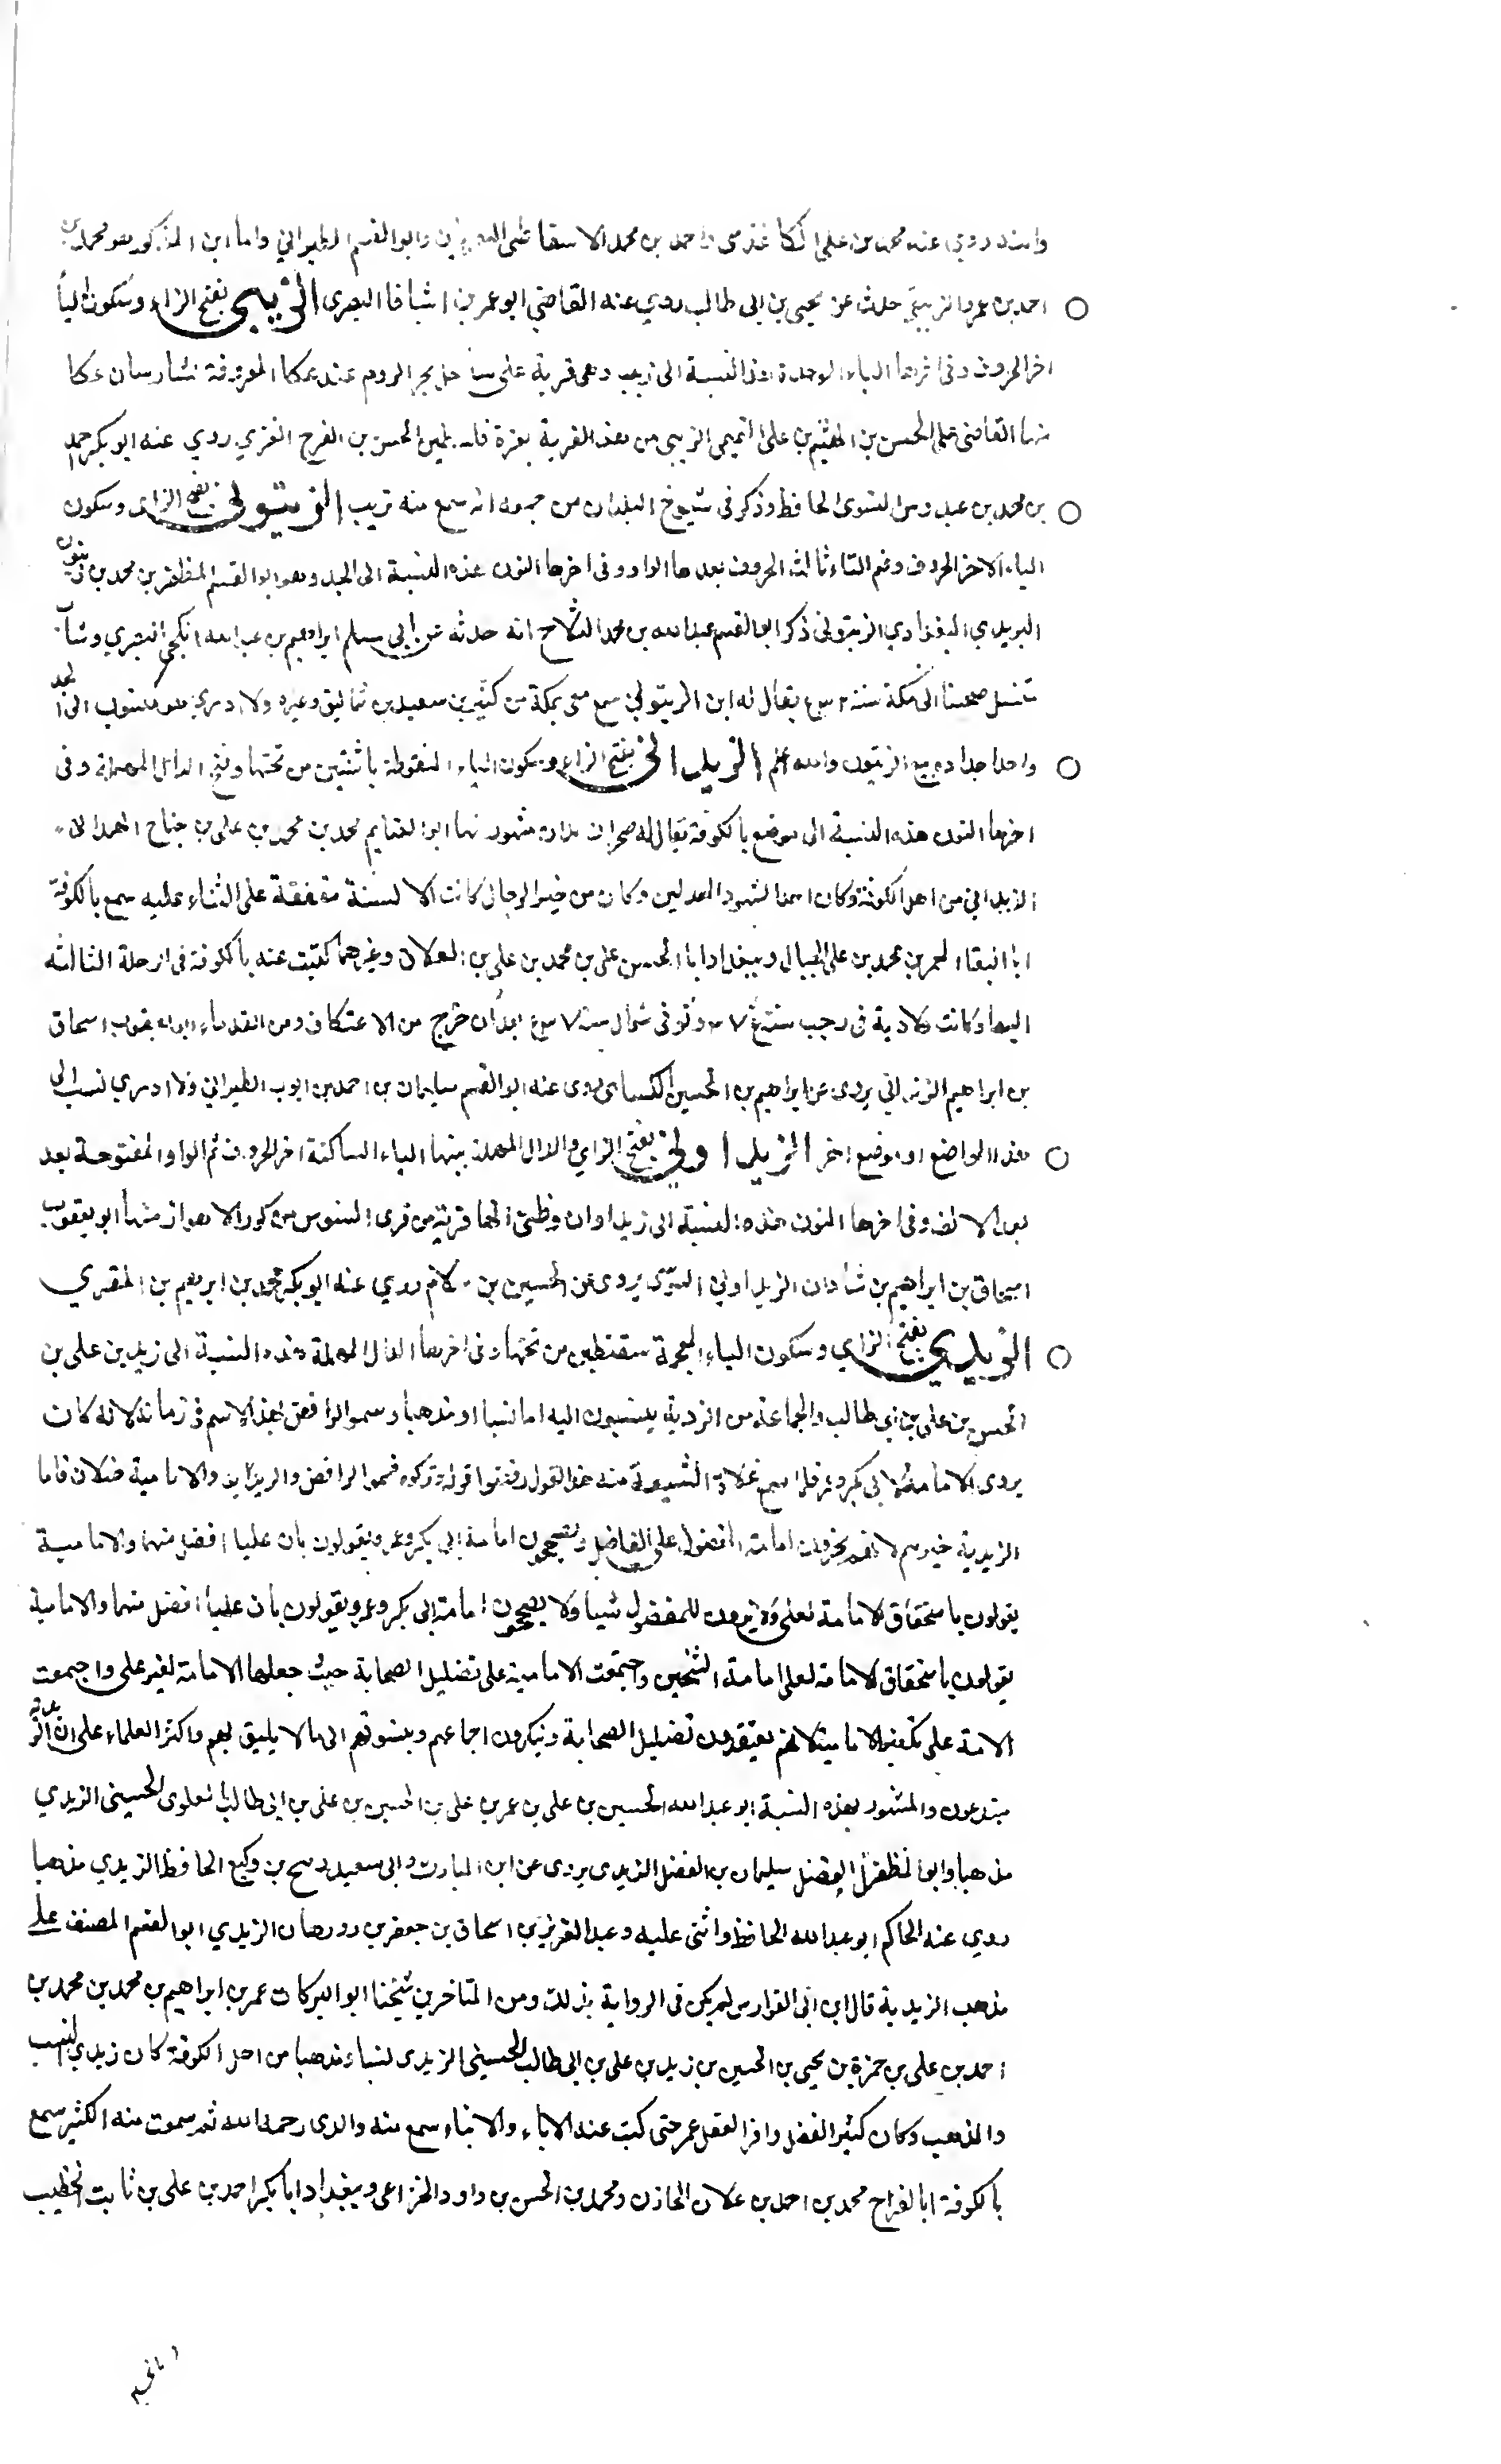 واسند روي عنه محمد بن علي الكاغذي واحمد بن محمد الاسفاطي البصريان وابو القسم الطبراني واما ابن المذكور هو محمد بن
احمد بن عمرو الزيبقي حدث عن يحيى بن ابي طالب روي عنه القاضي ابو عمر بن اشيافا البصرى الزيبي بفتح الزاء وسكون اليا
اخر الحروف وفي اخرها الباء الموحدة هذا النسبة الى زيب وهى قرية على ساحل بحر الروم عند عكا المعروفة بشارسان عكا
منها القاضى علي الحسن بن الهيثم بن على التميمى الزيبى من هذه القرية بغزة الحسن بن الفرج الغزي روي عنه ابو بكر احمد
بن محمد بن عبدوس النسوى الحافظ وذكر في شيوخ البلدان من جمعه انه سمع منه بزيب الزيتوني بفتح الزاى وسكون
الياء الاخر الحروف وضم التاء ثالث الحروف بعدها الواو وفى اخرها النون هذه النسبة الى الجد وهو ابو القسم المظفر بن محمد بن زيتون
البريدي البغدادي الزيتوني ذكر ابو القسم عبد الله بن محمد الثلاج انه حدثه عن ابى مسلم ابراهيم بن عبد الله الكجي البصري وشاب
صحبنا الى مكة سنة يقال له ابن الزيتوني سمع معى بمكة من كثير بن سعيد بن شماليق وغيره ولا ادري هو منسوب الى الجد
واحد اجداده بيع الزيتون والله اعلم الزيداني بفتح الزاء وسكون الياء المنقوطة باثنتين من تحتها وفتح الدال المهملة وفى
اخرها النون هذه النسبة الى موضع بالكوفة يقال له صحراء زيدان مشهور منها ابو الغنايم محمد بن محمد بن على بن جناح الهمدانى
الزيداني من اهل الكوفة وكان احد الشهود المعدلين وكان من خير الرجال كانت الالسنة متفقة على الثناء عليه سمع بالكوفة
ابا البقا المعمر بن محمد بن على الحبال وببغداد ابا الحسن على بن محمد بن على بن العلاف وغيرهما كتبت عنه بالكوفة فى الرحلة الثالثه
اليها وكانت ولادته فى رجب سنة وتوفى شوال سنة بعد ان خرج من الاعتكاف ومن القدماء ابو يعقوب اسحاق
بن ابراهيم الزيداني يروى عن ابراهيم بن الحسين الكسائى روى عنه ابو القسم سليمان بن احمد بن ايوب الطبراني ولا ادري نسب الى
هذه المواضع او موضع اخر الزيداوني بفتح الزاي والدال المهملة بينها الياء الساكنة اخر الحروف ثم الواو المفتوحة بعد
بعد الالف وفى اخرها النون هذه النسبة الى زيداوان وظنى انها قرية من قرى السوس من كور الاهواز منها ابو يعقوب
اسحاق بن ابراهيم بن شادان الزيداوني السوسى يروى عن الحسين بن سلام روي عنه ابو بكر محمد بن ابرهيم بن المقري
الزيدي بفتح الزاي وسكون الياء المعجمة بنقطتين من تحتها وفى اخرها الدال المهملة هذه النسبة الى زيد بن على بن
الحسن بن على بن ابي طالب والجماعة من الزدية ينسبون اليه اما نسبا او مذهبا وسموا الرافض بهذا الاسم فى زمانه لانه كان
يروى الامامة لابى بكر وعمر فلما سمع غلاة الشيعة منه هذا القول رفضوا قوله وتركوه فسموا الرافض والزيدية والامامية ضلان فاما
الزيدية خيرهم لانهم يجوزون امامة المفضول على الفاضل ويصححون امامة ابى بكر وعمر ويقولون بان عليا افضل منهما والامامية
يقولون باستحقاق الامامة لعلى ولا يرون للمفضول شيا ولا يصححون امامة ابى بكر وعمر ويقولون بان عليا افضل منهما والامامية
يقولون باستحقاق الامامة لعلى امامة الشيخين واجتمعت الامامية على تضليل الصحابة حيث جعلوا الامامة لغير على واجتمعت
الامة على تكفير الامامية لانهم يعتقدون تضليل الصحابة وينكرون اجماعهم وينسبونهم الى ما لا يليق بهم واكثر العلماء على ان الزيدية
مبتدعون والمشهور بهذه النسبة ابو عبد الله الحسين بن على بن عمر بن على بن الحسين بن على بن ابى طالب العلوى الحسينى الزيدي
مذهبا وابو المظفر الفضل سليمان بن الفضل الزيدى يروى عن ابن المبارك وابى سعيد رميح بن وكيع الحافظ الزيدي مذهبا
روي عنه الحاكم ابو عبد الله الحافظ واثنى عليه وعبد العزيز بن اسحاق بن جعفر بن روزبهان الزيدي ابو القسم المصنف على
مذهب الزيدية قال ابن ابى الفوارس لم يكن فى الرواية بذلك ومن المتاخرين شيخنا ابو البركات عمر بن ابراهيم بن محمد بن محمد بن
احمد بن على بن حمزة بن يحيى بن الحسين بن زيد بن على بن ابى طالب الحسينى الزيدى نسبا ومذهبا من اهل الكوفة كان زيدي النسب
والمذهب وكان كثير الفضل وافر العقل عمر حتى كتبت عنه الاباء والابناء سمع منه والدى رحمه الله ثم سمعت منه الكثير سمع
بالكوفة ابا الفراج محمد بن احمد بن علان الخازن ومحمد بن الحسن بن داود الخزاعى وببغداد ابا بكر احمد بن على بن ثابت الخطيب